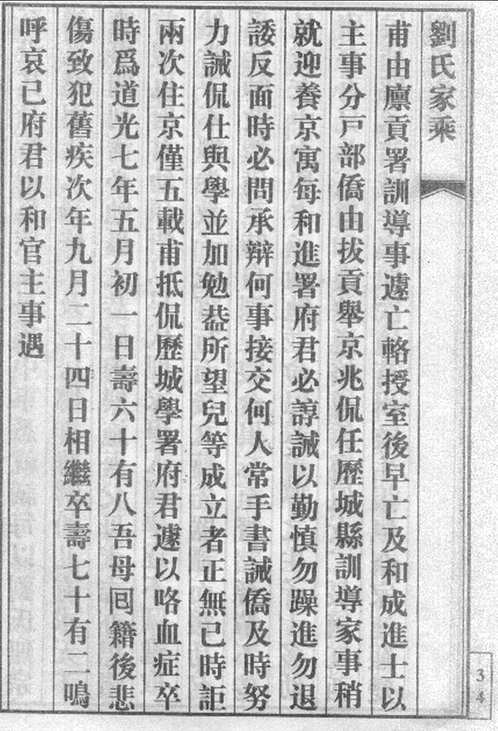 劉氏家乘
甫由廪貢署訓導事遽亡輅授室後早亡及和成進士以
主事分戸部僑由拔貢舉京兆侃任歷城縣訓導家事稍
就迎養京寓每和進署府君必諄誡以勤慎勿躁進勿退
諉反面時必問承辦何事接交何人常手書誡僑及時努
力誡侃仕與學並加勉葢所望兒等成立者正無已時詎
兩次住京僅五載甫抵侃歷城學署府君遽以咯血症卒
時爲道光七年五月初一日壽六十有八吾母回籍後悲
傷致犯舊疾次年九月二十四日相繼卒壽七十有二鳴
呼哀已府君以和官主事遇
34